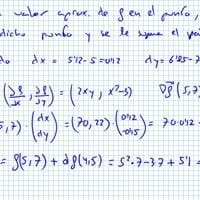 valor aprox. de f en el punto,
dicho punto y se le suma el
do dx = 5'12-5=0'12 dy= 6'85-7
(∂f/∂x, ∂f/∂y) = (2xy, x²-3) ∇f(5,7)
5,7) · (dx dy) = (70, 22) · (0'12 -0'15) = 70·0'12
= f(5,7) + df(4,5) = 5²·7-3·7+5'1 =